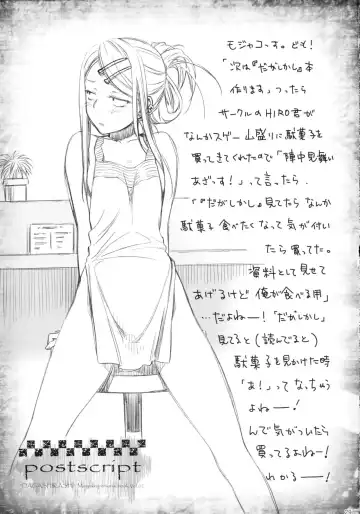 モジャコっす。ども!
「次は『だがしかし』本
作ります」っつったら
サークルのHIRO君が
なんかスゲー山盛りに駄菓子を
買ってきてくれたので「陣中見舞い
あざっす!」って言ったら、
「『だがしかし』見てたらなんか
駄菓子食べたくなって気が付い
たら買ってた。
資料として見せて
あげるけど俺が食べる用」
…だよねー!「だがしかし」
見てると(読んでると)
駄菓子を見かけた時
「あ!」ってなっちゃう
よねー!
んで気がついたら
買ってるよねー!
わかるー!
postscript